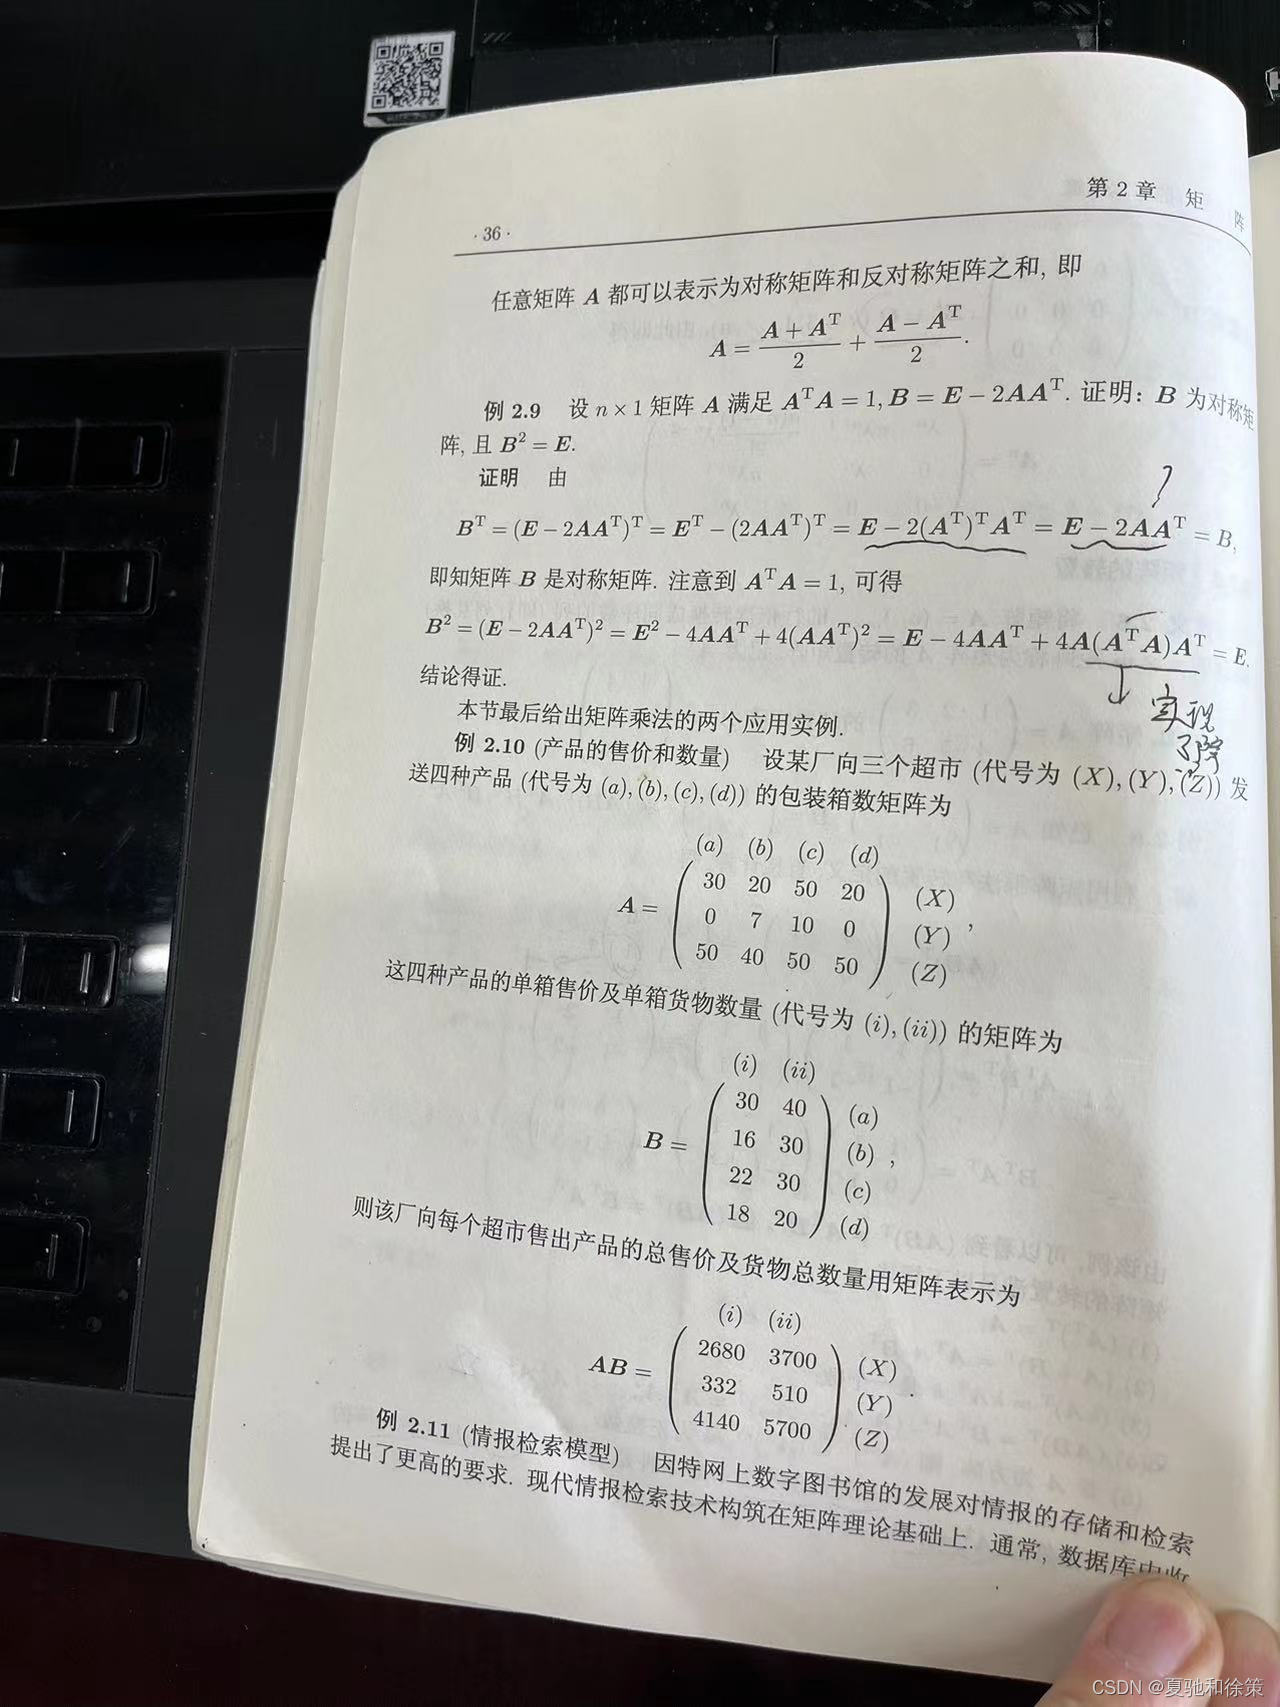 第 2 章 矩 阵
· 36 ·
任意矩阵 A 都可以表示为对称矩阵和反对称矩阵之和, 即
A = (A + Aᵀ)/2 + (A − Aᵀ)/2.
例 2.9 设 n × 1 矩阵 A 满足 AᵀA = 1, B = E − 2AAᵀ. 证明: B 为对称矩
阵, 且 B² = E.
证明 由
?
Bᵀ = (E − 2AAᵀ)ᵀ = Eᵀ − (2AAᵀ)ᵀ = E − 2(Aᵀ)ᵀAᵀ = E − 2AAᵀ = B,
即知矩阵 B 是对称矩阵. 注意到 AᵀA = 1, 可得
B² = (E − 2AAᵀ)² = E² − 4AAᵀ + 4(AAᵀ)² = E − 4AAᵀ + 4A(AᵀA)Aᵀ = E.
结论得证.
实现
了
本节最后给出矩阵乘法的两个应用实例.
例 2.10 (产品的售价和数量) 设某厂向三个超市 (代号为 (X), (Y), (Z)) 发
送四种产品 (代号为 (a), (b), (c), (d)) 的包装箱数矩阵为
(a) (b) (c) (d)
30 20 50 20 (X)
A = 0 7 10 0 (Y) ,
50 40 50 50 (Z)
这四种产品的单箱售价及单箱货物数量 (代号为 (i), (ii)) 的矩阵为
(i) (ii)
30 40 (a)
B = 16 30 (b) ,
22 30 (c)
18 20 (d)
则该厂向每个超市售出产品的总售价及货物总数量用矩阵表示为
(i) (ii)
2680 3700 (X)
AB = 332 510 (Y) .
4140 5700 (Z)
例 2.11 (情报检索模型) 因特网上数字图书馆的发展对情报的存储和检索
提出了更高的要求. 现代情报检索技术构筑在矩阵理论基础上. 通常, 数据库中收
CSDN @夏驰和徐策